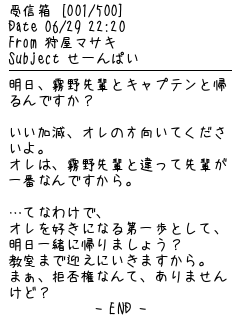 受信箱 [001/500]
Date 06/29 22:20
From 狩屋マサキ
Subject せーんぱい
明日、霧野先輩とキャプテンと帰
るんですか?
いい加減、オレの方向いてくださ
いよ。
オレは、霧野先輩と違って先輩が
一番なんですから。
…てなわけで、
オレを好きになる第一歩として、
明日一緒に帰りましょう?
教室まで迎えにいきますから。
まぁ、拒否権なんて、ありません
けど?
- END -